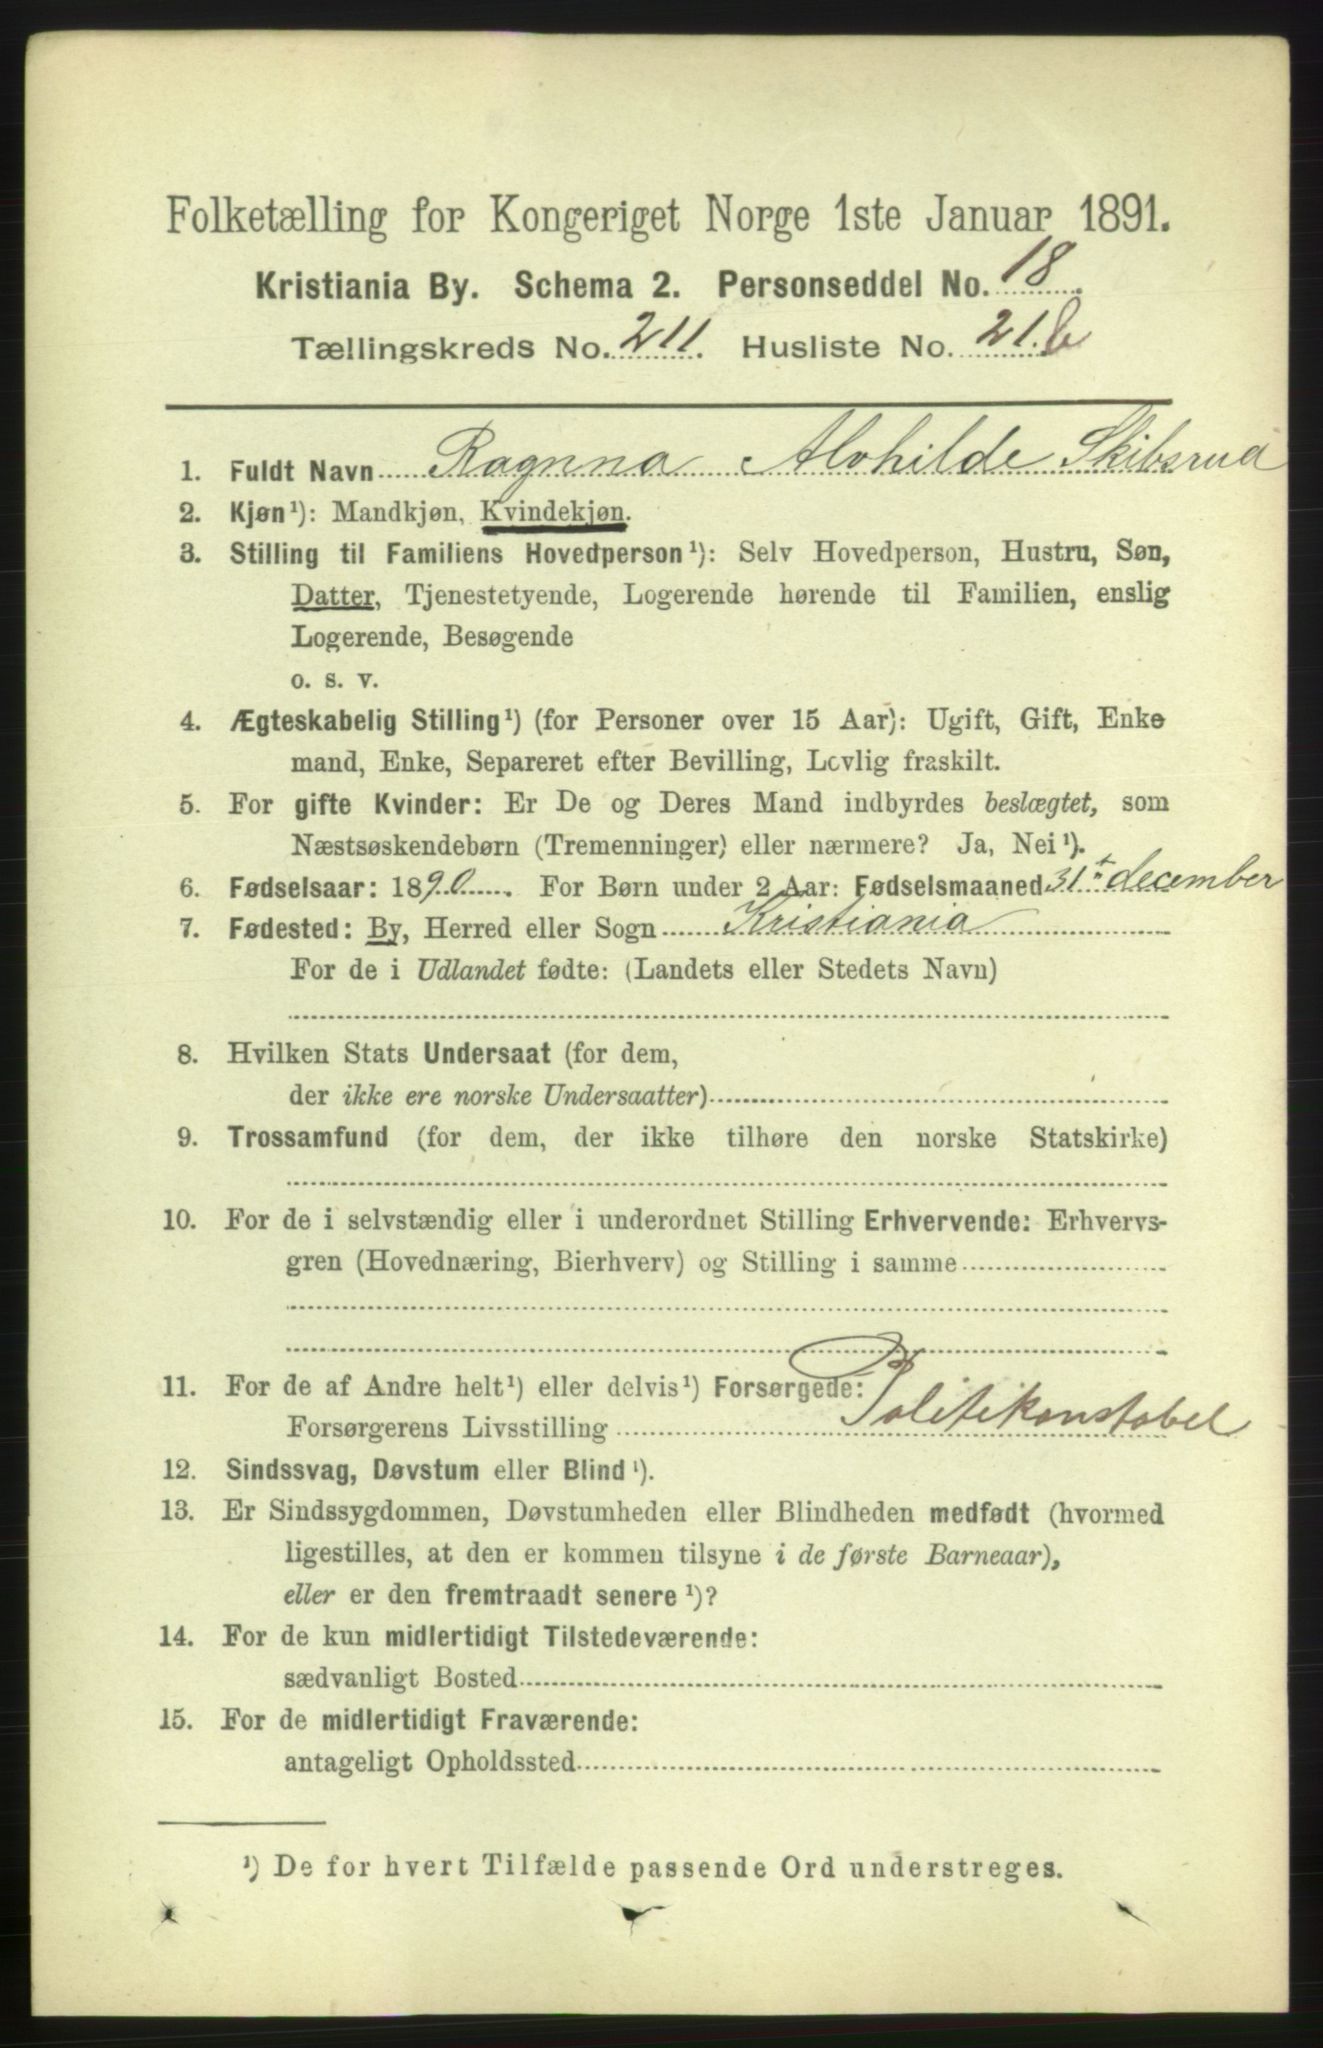 Folketælling for Kongeriget Norge 1ste Januar 1891.
Kristiania By. Schema 2. Personseddel No. 18.
Tællingskreds No. 211. Husliste No. 21.b
1. Fuldt Navn Ragnna Alvhilde Skibsrud
2. Kjøn¹): Mandkjøn, Kvindekjøn.
3. Stilling til Familiens Hovedperson¹): Selv Hovedperson, Hustru, Søn,
Datter, Tjenestetyende, Logerende hørende til Familien, enslig
Logerende, Besøgende
o. s. v.
4. Ægteskabelig Stilling¹) (for Personer over 15 Aar): Ugift, Gift, Enke
mand, Enke, Separeret efter Bevilling, Lovlig fraskilt.
5. For gifte Kvinder: Er De og Deres Mand indbyrdes beslægtet, som
Næstsøskendebørn (Tremenninger) eller nærmere? Ja, Nei¹).
6. Fødselsaar: 1890. For Børn under 2 Aar: Fødselsmaaned 31t december
7. Fødested: By, Herred eller Sogn Kristiania
For de i Udlandet fødte: (Landets eller Stedets Navn)
8. Hvilken Stats Undersaat (for dem,
der ikke ere norske Undersaatter)
9. Trossamfund (for dem, der ikke tilhøre den norske Statskirke)
10. For de i selvstændig eller i underordnet Stilling Erhvervende: Erhvervs-
gren (Hovednæring, Bierhverv) og Stilling i samme
11. For de af Andre helt¹) eller delvis¹) Forsørgede:
Forsørgerens Livsstilling Politikonstabel
12. Sindssvag, Døvstum eller Blind¹).
13. Er Sindssygdommen, Døvstumheden eller Blindheden medfødt (hvormed
ligestilles, at den er kommen tilsyne i de første Barneaar),
eller er den fremtraadt senere¹)?
14. For de kun midlertidigt Tilstedeværende:
sædvanligt Bosted
15. For de midlertidigt Fraværende:
antageligt Opholdssted
¹) De for hvert Tilfælde passende Ord understreges.